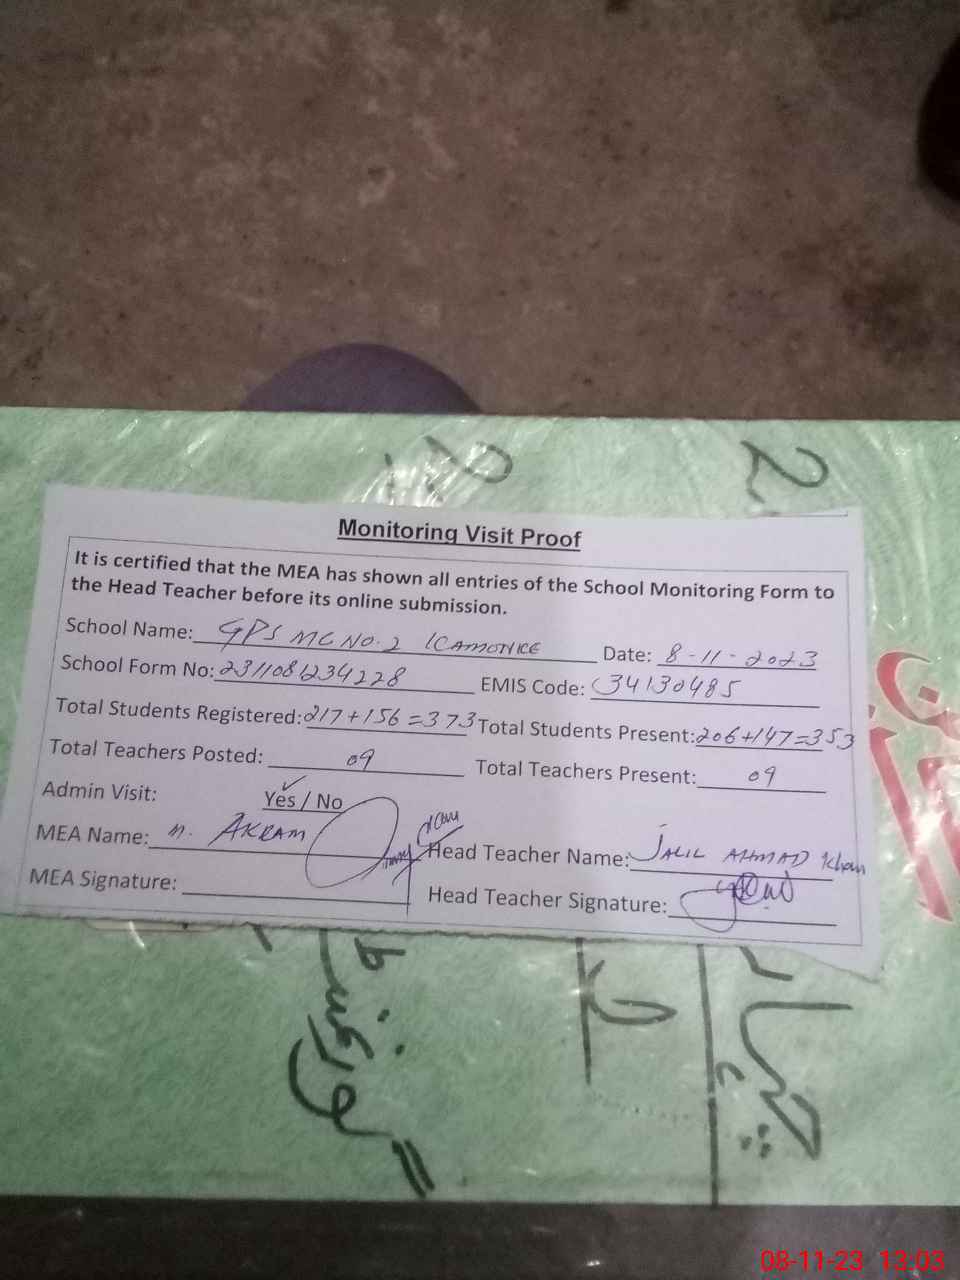 Monitoring Visit Proof
It is certified that the MEA has shown all entries of the School Monitoring Form to
the Head Teacher before its online submission.
School Name: GPS MC NO. 2 KAMONKE Date: 8-11-2023
School Form No: 2311081234228 EMIS Code: 34130485
Total Students Registered: 217+156=373 Total Students Present: 206+147=353
Total Teachers Posted: 09 Total Teachers Present: 09
Admin Visit: Yes / No
MEA Name: M. AKRAM Head Teacher Name: JALIL AHMAD Khan
MEA Signature: Head Teacher Signature:
گورنمنٹ
08-11-23 13:03